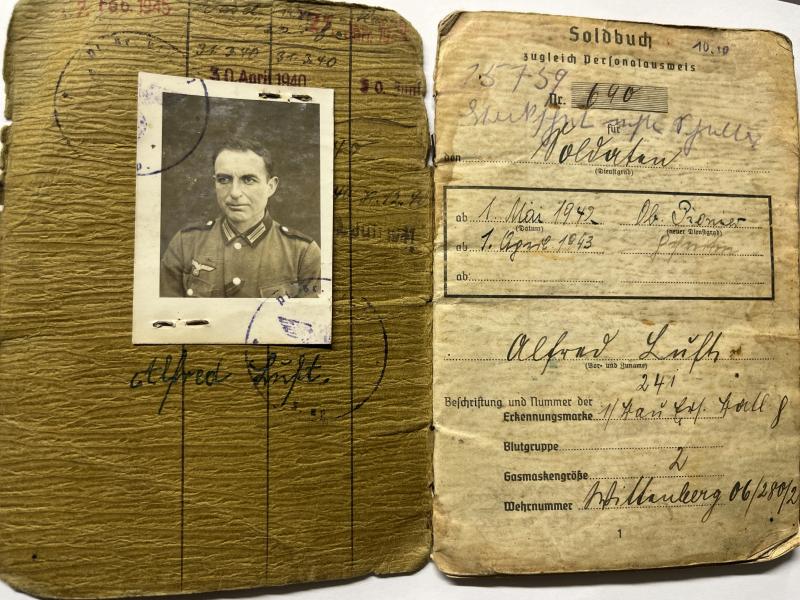 Feb. 1945
31.3.40 31.3.40
30. April 1940
30. Juni
Alfred Luft.
Soldbuch
zugleich Personalausweis
15759
Nr. 690
für
den Soldaten
(Dienstgrad)
ab 1. Mai 1942 Ob. Pionier
(Datum) (neuer Dienstgrad)
ab 1. April 1943
ab:
Alfred Luft.
(Vor- und Zuname)
241
Beschriftung und Nummer der
Erkennungsmarke 1/Bau Ers. Batl 8
Blutgruppe
Gasmaskengröße 2
Wehrnummer Wittenberg 06/280/2
1